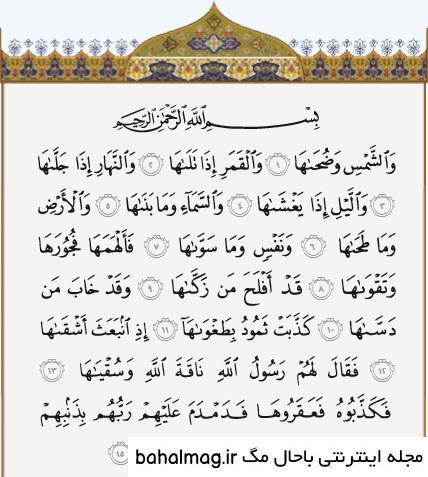 بِسْمِ اللَّهِ الرَّحْمَٰنِ الرَّحِيمِ
وَالشَّمْسِ وَضُحَاهَا ﴿١﴾ وَالْقَمَرِ إِذَا تَلَاهَا ﴿٢﴾ وَالنَّهَارِ إِذَا جَلَّاهَا
﴿٣﴾ وَاللَّيْلِ إِذَا يَغْشَاهَا ﴿٤﴾ وَالسَّمَاءِ وَمَا بَنَاهَا ﴿٥﴾ وَالْأَرْضِ
وَمَا طَحَاهَا ﴿٦﴾ وَنَفْسٍ وَمَا سَوَّاهَا ﴿٧﴾ فَأَلْهَمَهَا فُجُورَهَا
وَتَقْوَاهَا ﴿٨﴾ قَدْ أَفْلَحَ مَن زَكَّاهَا ﴿٩﴾ وَقَدْ خَابَ مَن
دَسَّاهَا ﴿١٠﴾ كَذَّبَتْ ثَمُودُ بِطَغْوَاهَا ﴿١١﴾ إِذِ انبَعَثَ أَشْقَاهَا
﴿١٢﴾ فَقَالَ لَهُمْ رَسُولُ اللَّهِ نَاقَةَ اللَّهِ وَسُقْيَاهَا ﴿١٣﴾
فَكَذَّبُوهُ فَعَقَرُوهَا فَدَمْدَمَ عَلَيْهِمْ رَبُّهُم بِذَنبِهِمْ
﴿١٥﴾
مجله اینترنتی باحال مگ bahalmag.ir